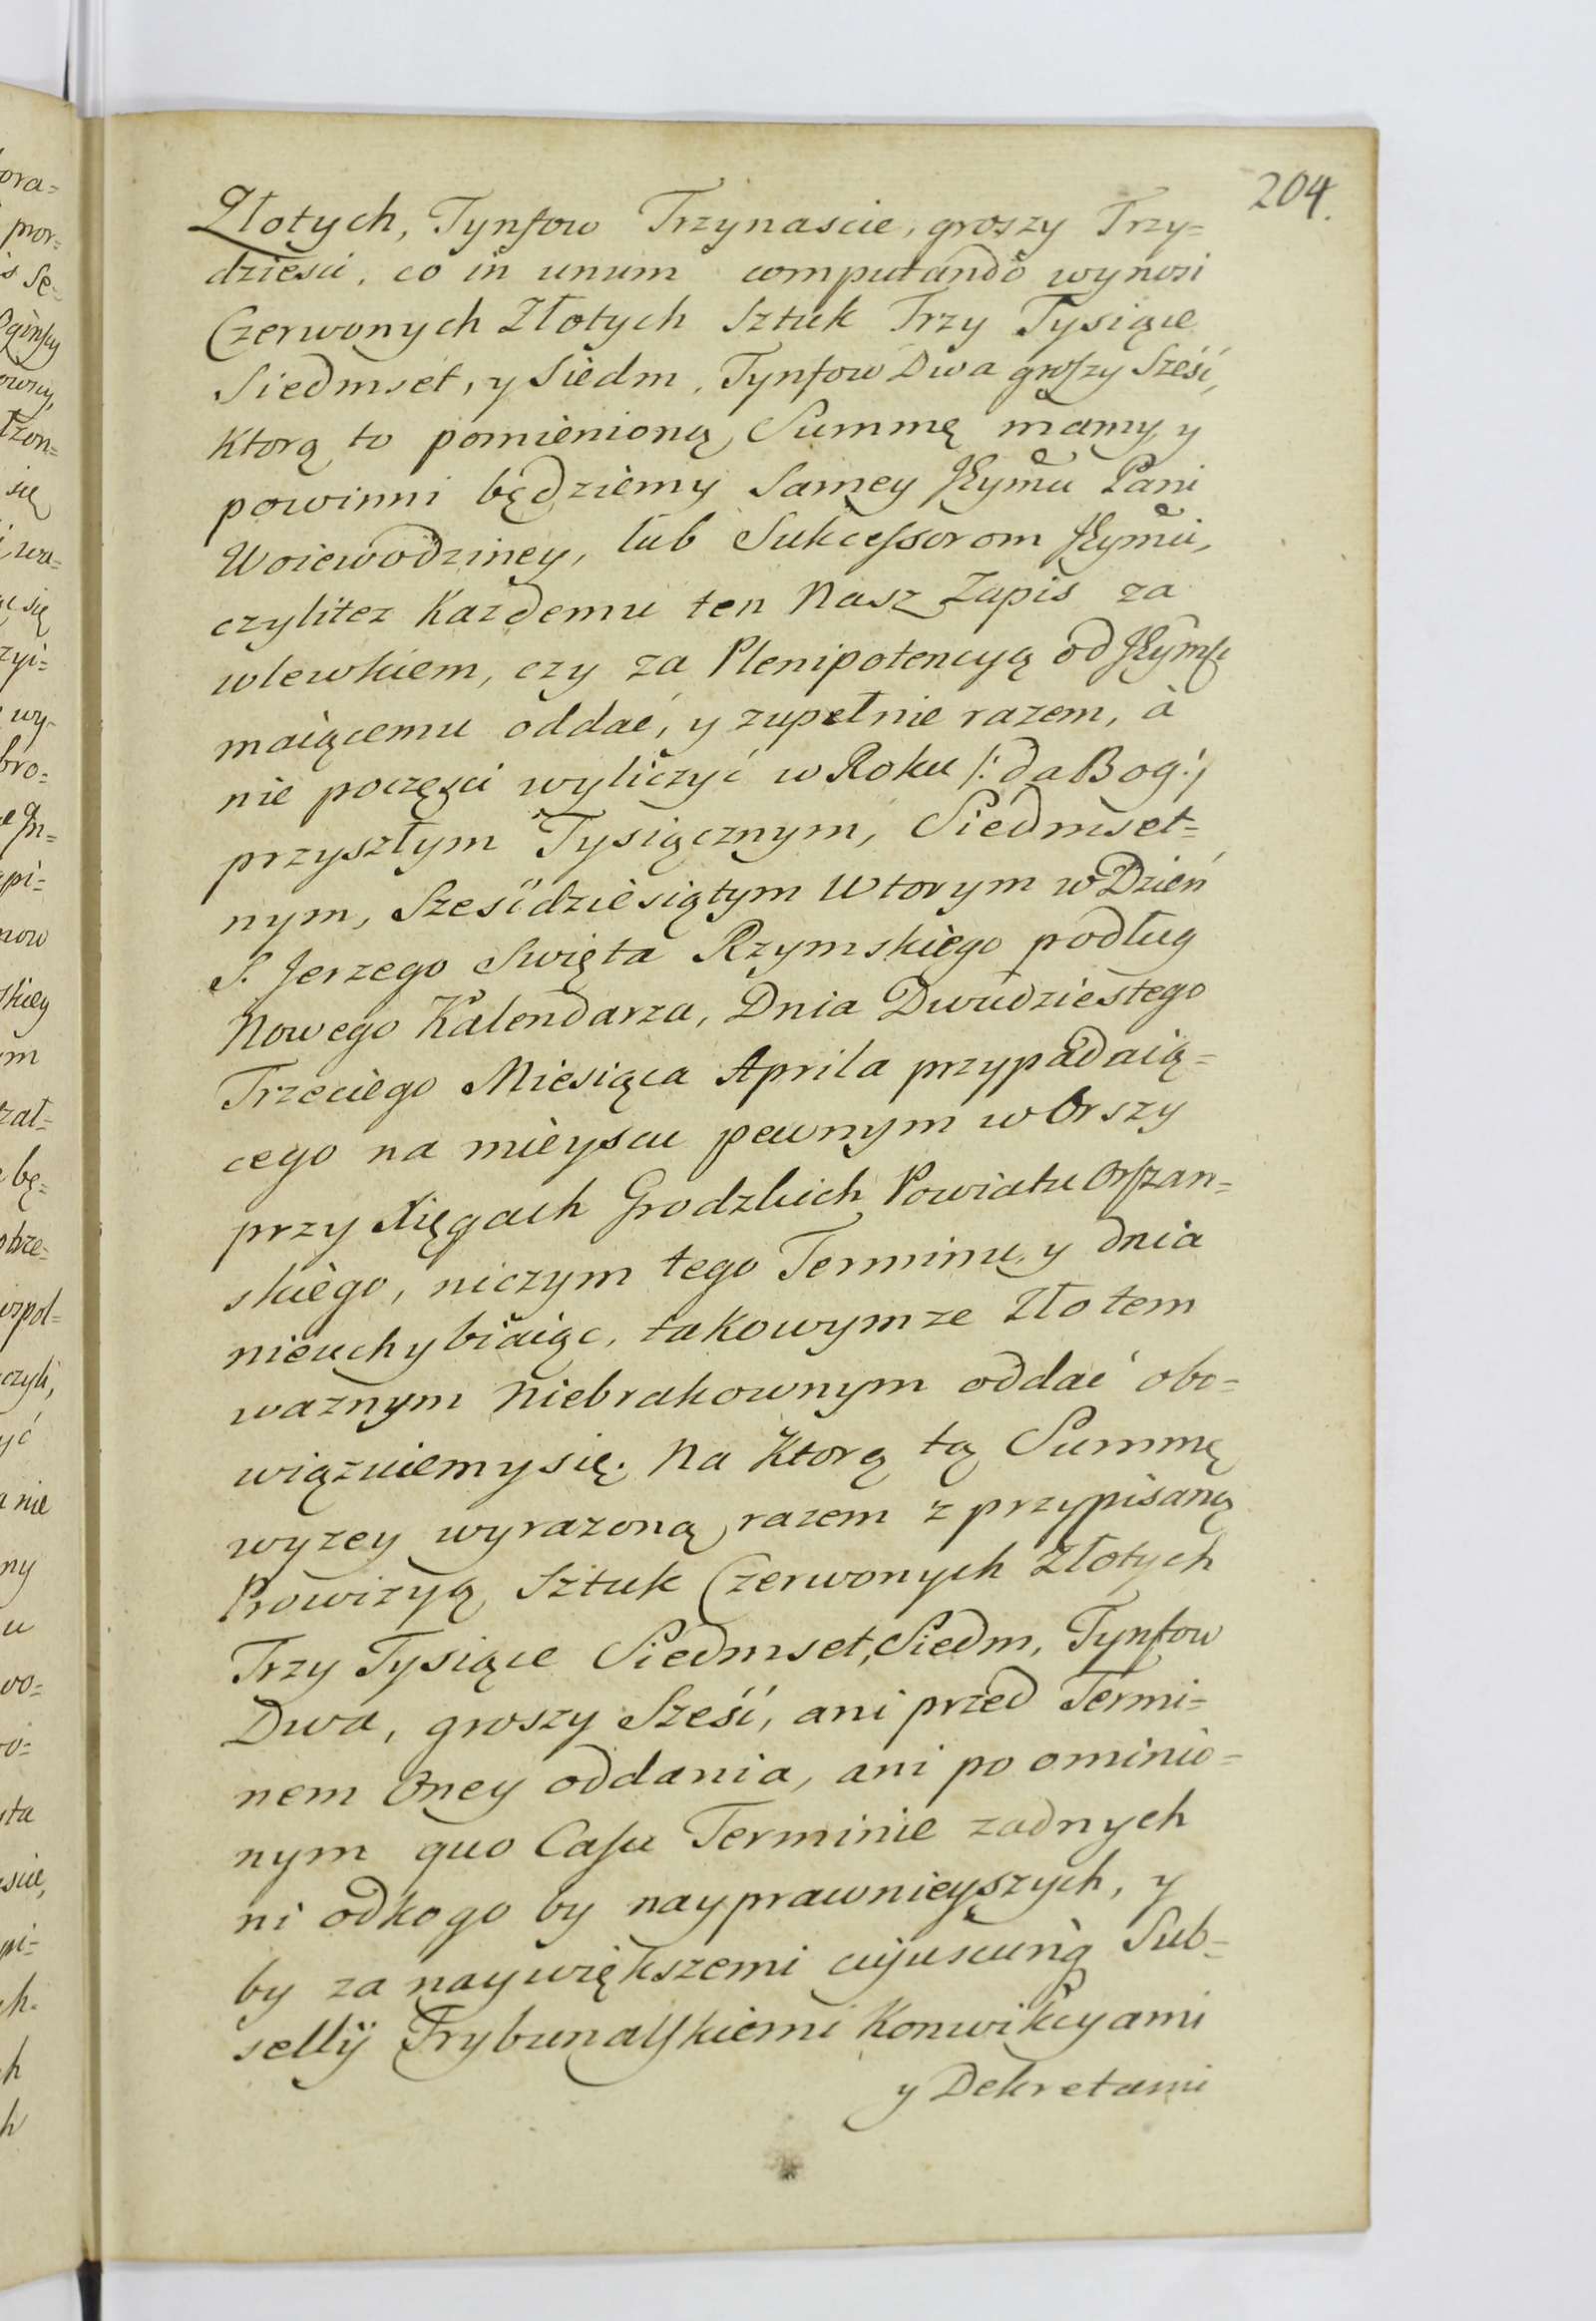 204.
Złotych, Tynfow Trzynascie, groszy Trzy=
dziesci, co in unum computando wynosi
Czerwonych Złotych Sztuk Trzy Tysiące
Siedmset, y Siedm, Tynfow Dwa groszy Sześć,
Ktorą to pomienioną Summę mamy y
powinni będziemy Samey JEymći Pani
Woiewodziney, lub Sukcessorom JEymći,
czylitez Kazdemu ten Nasz Zapis za
wlewkiem, czy za Plenipotencyą od JEymść
maiącemu oddać, y zupełnie razem, à
nie poczęsci wyliczyć w Roku /: da Bog :/
przyszłym Tysiącznym, Siedmset=
nym, Sześćdziesiątym Wtorym w Dzień
S. Jerzego Swięta Rzymskiego podług
Nowego Kalendarza, Dnia Dwudziestego
Trzeciego Miesiąca Aprila przypadaią=
cego na mieyscu pewnym w Orszy
przy Xięgach Grodzkich Powiatu Orszan=
skiego, niczym tego Terminu y dnia
nieuchybiaiąc, takowymze Złotem
waznym Niebrakownym oddać obo=
wiązuiemy się. Na Ktorą tą Summę
wyzey wyrazoną razem z przypisaną
Prowizyą Sztuk Czerwonych Złotych
Trzy Tysiące Siedmset, Siedm, Tynfow
Dwa, groszy Sześć, ani przed Termi=
nem Oney oddania, ani po ominio=
nym quo Casu Terminie zadnych
ni odkogo by nayprawnieyszych, y
by za naywiększemi cujuscunq Sub=
sellij Trybunalskiemi Konwikcyami
y Dekretami